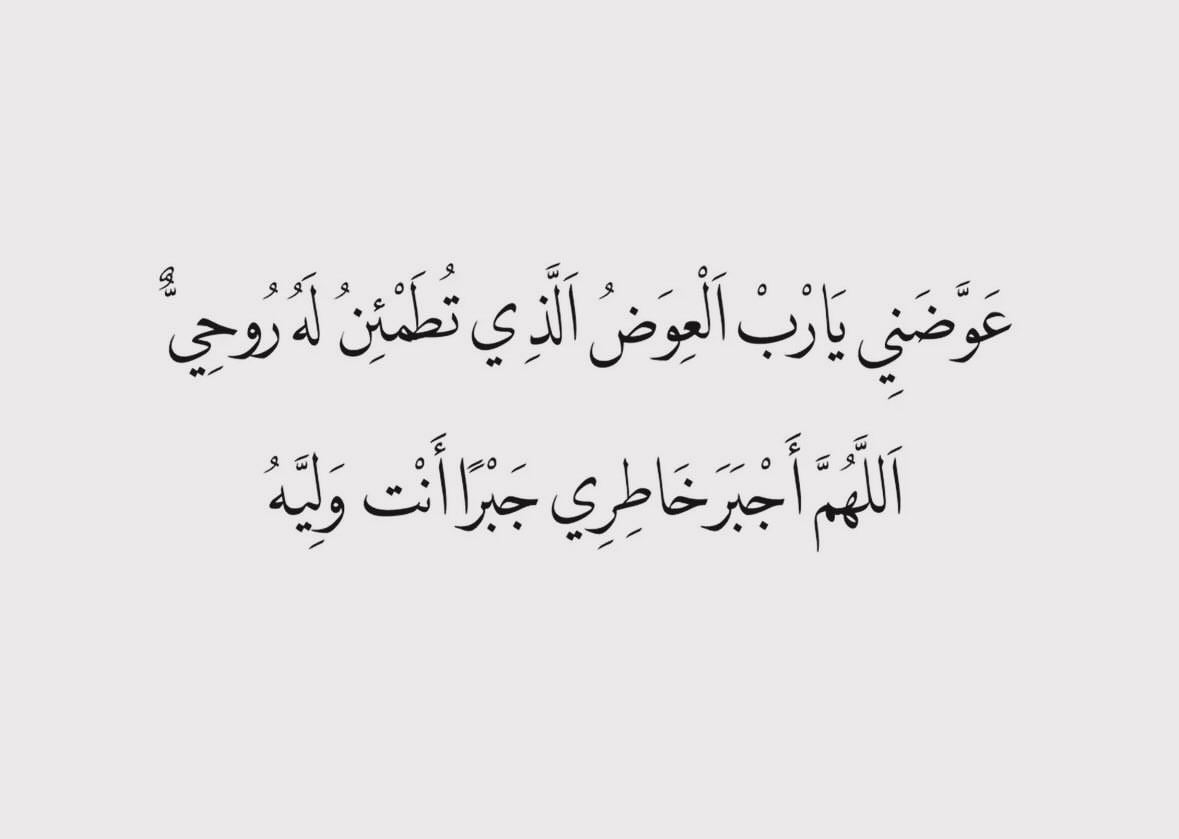 عَوَّضَنِي يَارْبْ اَلْعِوَضُ اَلَّذِي تُطَمْئِنُ لَهُ رُوحِيٌّ
اَللَّهُمَّ أَجْبَرَ خَاطِرِي جَبْرًا أَنْت وَلِيَّهُ